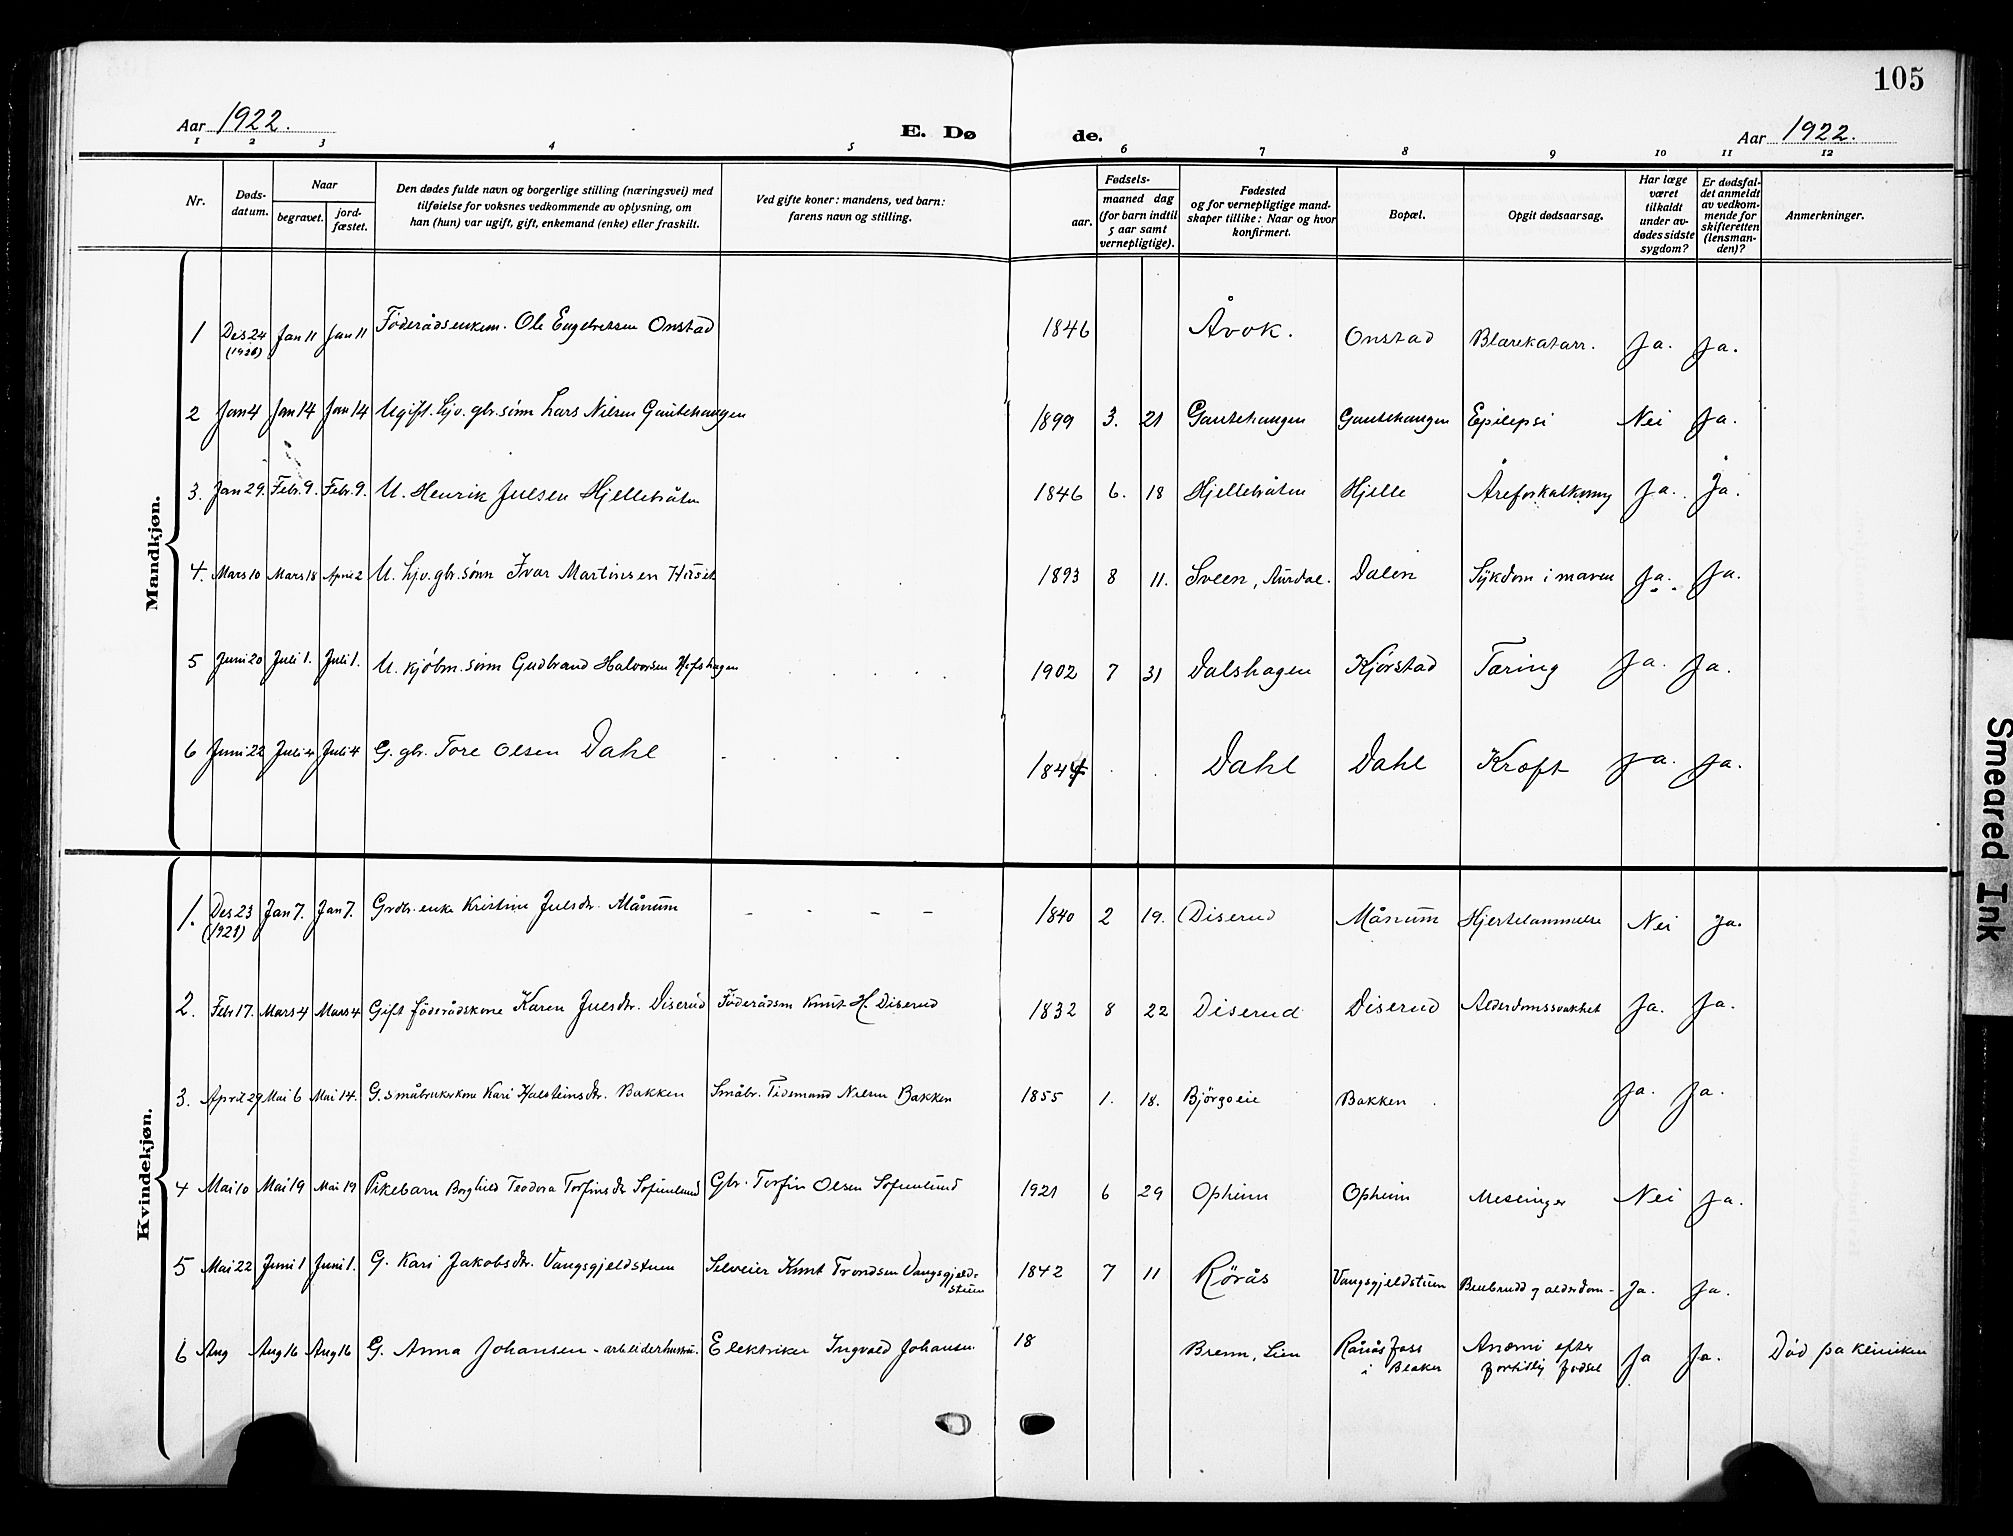 105
Aar 1922.
E. Døde.
Aar 1922.
1 2 3 4 5 6 7 8 9 10 11 12
Nr.
Døds-
datum.
Naar
begravet.
jord-
fæstet.
Den dødes fulde navn og borgerlige stilling (næringsvei) med
tilføielse for voksnes vedkommende av oplysning, om
han (hun) var ugift, gift, enkemand (enke) eller fraskilt.
Ved gifte koner: mandens, ved barn:
farens navn og stilling.
Fødsels-
aar.
maaned dag
(for barn indtil
5 aar samt
vernepligtige).
Fødested
og for vernepligtige mand-
skaper tillike: Naar og hvor
konfirmert.
Bopæl.
Opgit dødsaarsag.
Har læge
været
tilkaldt
under av-
dødes sidste
sygdom?
Er dødsfal-
det anmeldt
av vedkom-
mende for
skifteretten
(lensman-
den)?
Anmerkninger.
Mandkjøn.
1 Des 24 Jan 11 Jan 11 Föderådsenkem. Ole Engebretsen Onstad 1846 Åvok. Onstad Blærekatarr. Ja. Ja.
2 Jan 4 Jan 14 Jan 14 Ugift. hjv. gbr. sönn Lars Nilsen Gautehaugen 1899 3. 21 Gautehaugen Gautehaugen Epilepsi Nei Ja.
3. Jan 29. Febr. 9. Febr. 9. U. Henrik Julsen Hjellebråten 1846 6. 18 Hjellebråten Hjelle Åreforkalkning Ja. Ja.
4. Mars 10 Mars 18 April 2 U. hjv. gbr. sönn Ivar Martinsen 1893 8 11. Sveen, Aurdal. Dalen Sykdom i maven Ja. Ja.
5 Juni 20 Juli 1. Juli 1. U. kjøbm. sönn Gudbrand Halvorsen Hofshagen 1902 7 31 Dalshagen Kjörstad Tæring Ja. Ja.
6 Juni 22 Juli 4 Juli 4 G. gbr. Tore Olsen Dahl 1844 Dahl Dahl Kræft Ja. Ja.
Kvindekjøn.
1. Des 23 Jan 7. Jan 7. Grdbr. enke Kristine Julsdtr. Månum 1840 2 19. Diserud Månum Hjertelammelse Nei Ja.
(1921)
2. Febr 17. Mars 4 Mars 4 Gift föderådskone Karen Julsdtr. Diserud Föderådsm Knut H. Diserud 1832 8 22 Diserud Diserud Alderdomssvakhet Ja. Ja.
3. April 29 Mai 6 Mai 14. G. småbrukerkone Kari Halsteinsdtr. Bakken Småbr. Tidemand Nilsen Bakken 1855 1. 18. Björgoeie Bakken Ja. Ja.
4 Mai 10 Mai 19 Mai 19 Pikebarn Borghild Teodora Torfinsdtr Sofienlund Gbr. Torfin Olsen Sofienlund 1921 6 29 Opheim Opheim Meslinger Nei Ja.
5 Mai 22 Juni 1 Juni 1. G. Kari Jakobsdtr. Vangsgjeldstuen Selveier Knut Trondsen Vangsgjeld-
stuen 1842 7 11 Rörås Vangsgjeldstuen Benbrudd og alderdom Ja. Ja.
6 Aug Aug 16 Aug 16 G. Anna Johansen - arbeiderhustru. Elektriker Ingvald Johansen 18 Brenn, Lien Rånåsfoss
i Blaker Anæmi efter
fortidlig födsel Ja Ja. Död på kliniken
Smeared Ink